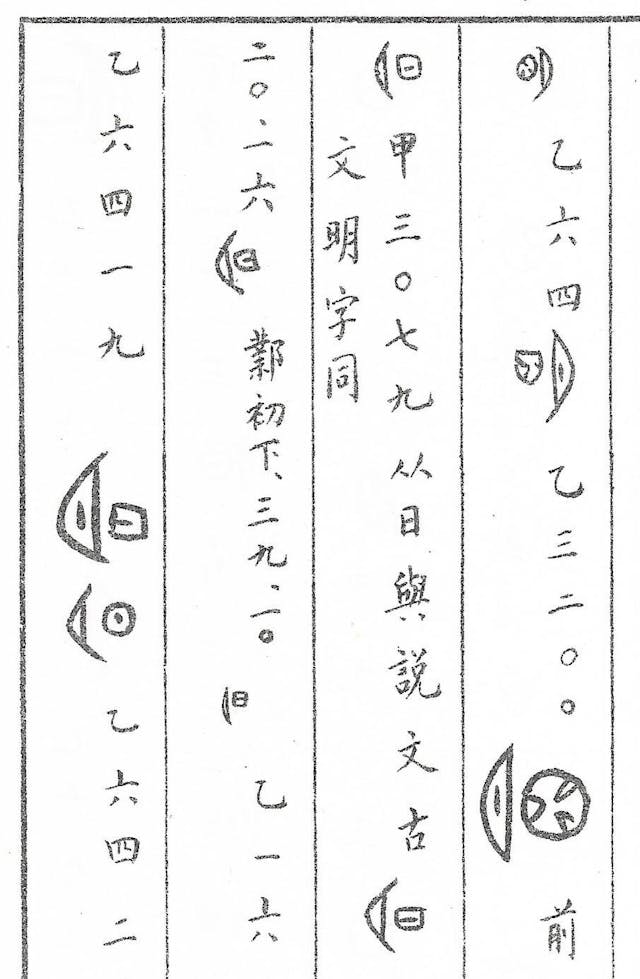 乙六四 乙三二〇〇 前
甲三〇七九 从日與説文古
文明字同
二〇、一六 鄴初下、三九、一〇 乙一六
乙六四一九 乙六四二